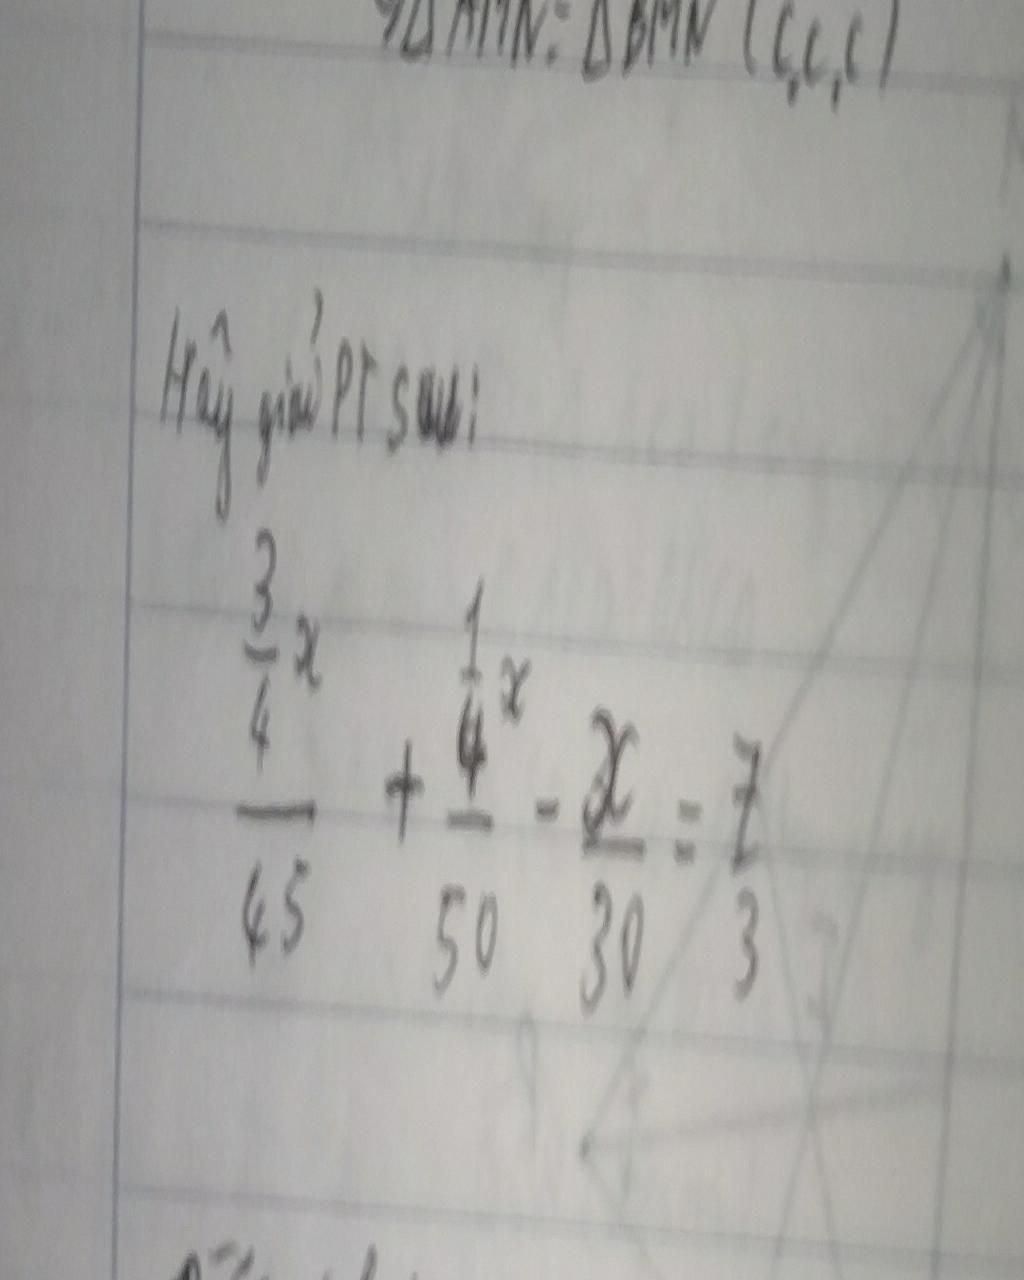 ΔAMN = ΔBMN (c,c,c)
Hãy giải PT sau:
\frac{\frac{3}{4}x}{45} + \frac{\frac{1}{4}x}{50} - \frac{x}{30} = \frac{7}{3}